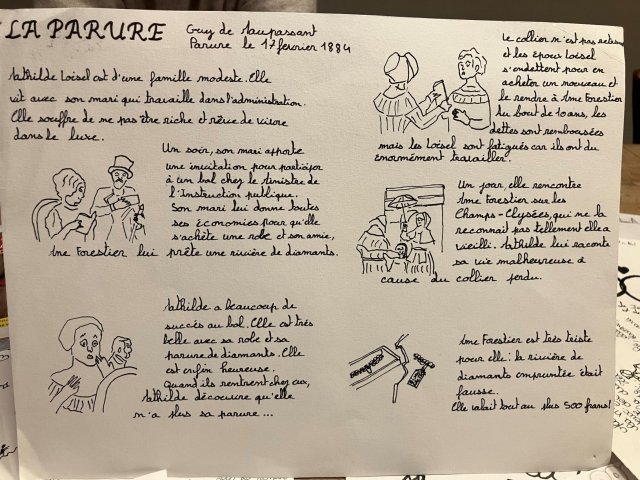 LA PARURE
Guy de Maupassant
Parure le 17 février 1884
Mathilde Loisel est d'une famille modeste. Elle
vit avec son mari qui travaille dans l'administration.
Elle souffre de ne pas être riche et rêve de vivre
dans le luxe.
Un soir, son mari apporte
une invitation pour participer
à un bal chez le Ministre de
l'Instruction publique.
Son mari lui donne toutes
ses économies pour qu'elle
s'achète une robe et son amie,
Mme Forestier lui prête une rivière de diamants.
Mathilde a beaucoup de
succès au bal. Elle est très
belle avec sa robe et sa
parure de diamants. Elle
est enfin heureuse.
Quand ils rentrent chez eux,
Mathilde découvre qu'elle
n'a plus sa parure...
Le collier n'est pas
et les époux Loisel
s'endettent pour en
acheter un nouveau et
le rendre à Mme Forestier
Au bout de 10 ans, les
dettes sont remboursées
mais les Loisel sont fatigués car ils ont du
énormément travailler.
Un jour, elle rencontre
Mme Forestier sur les
Champs-Elysées, qui ne la
reconnait pas tellement elle a
vieilli. Mathilde lui raconte
sa vie malheureuse à
cause du collier perdu.
Mme Forestier est très triste
pour elle : la rivière de
diamants empruntée était
fausse.
Elle valait tout au plus 500 frans!